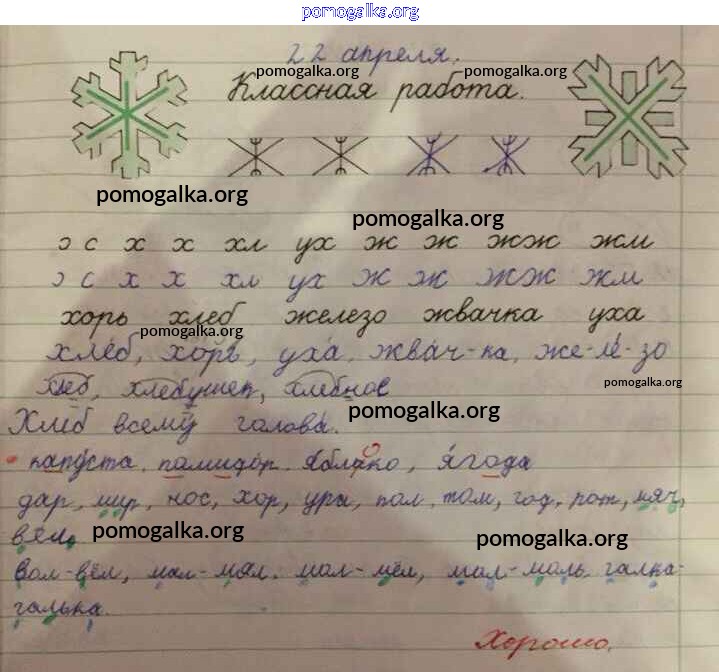 pomogalka.org
22 апреля.
pomogalka.org pomogalka.org
Классная работа.
pomogalka.org
pomogalka.org
с х х хл ух ж ж жж жм
с х х хл ух ж ж жж жм
хорь хлеб железо жвачка уха
pomogalka.org
хлеб, хорь, уха, жвач-ка, же-ле-зо
pomogalka.org
хлеб, хлебушек, хлебное
pomogalka.org
Хлеб всему голова.
капуста, помидор, яблоко, ягода
дар, мир, нос, хор, ура, пол, том, год, рот, мяч,
вёл.
pomogalka.org
pomogalka.org
вол-вёл, мал-мял, мол-мел, мол-моль, галка-
галька.
Хорошо.